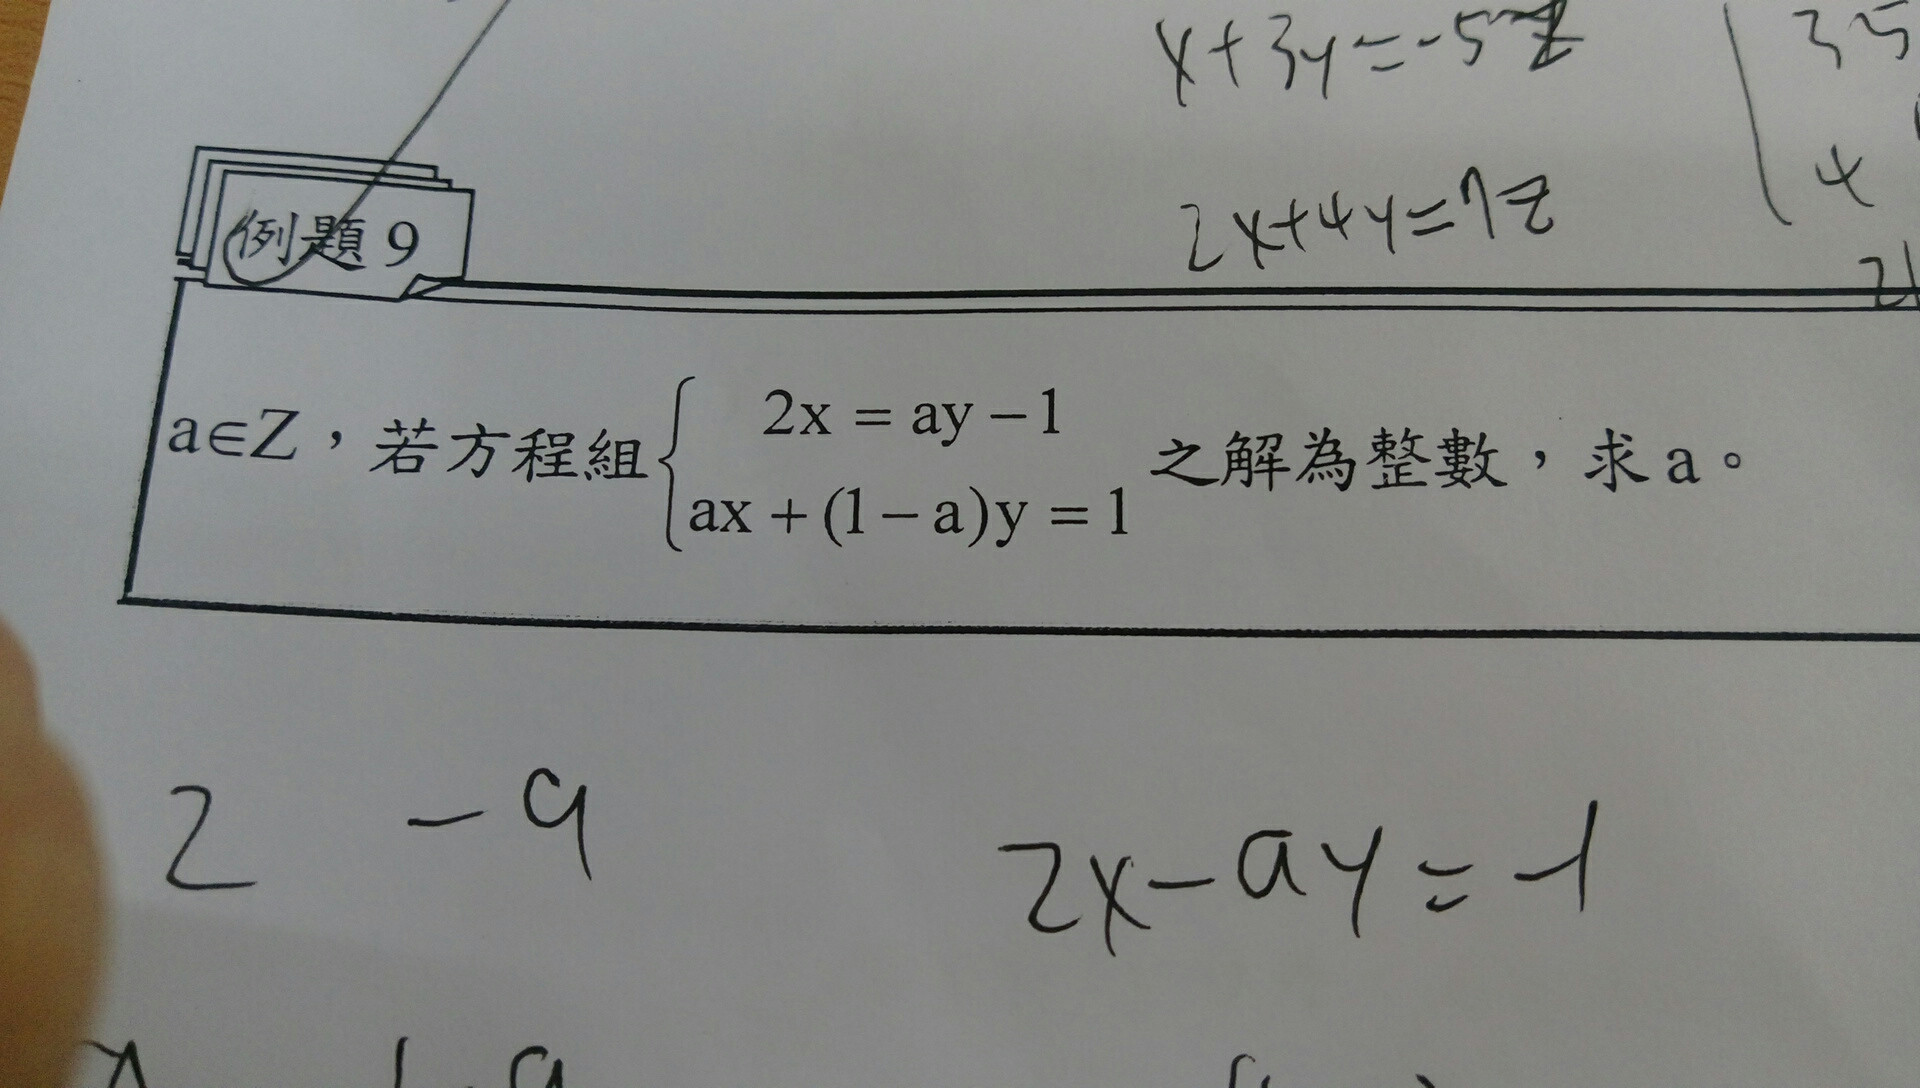 x+3y=-5z
35
4
2x+4y=7z
例題 9
a∈Z，若方程組 { 2x = ay − 1
ax + (1 − a)y = 1 之解為整數，求 a。
2 -a
2x-ay=-1